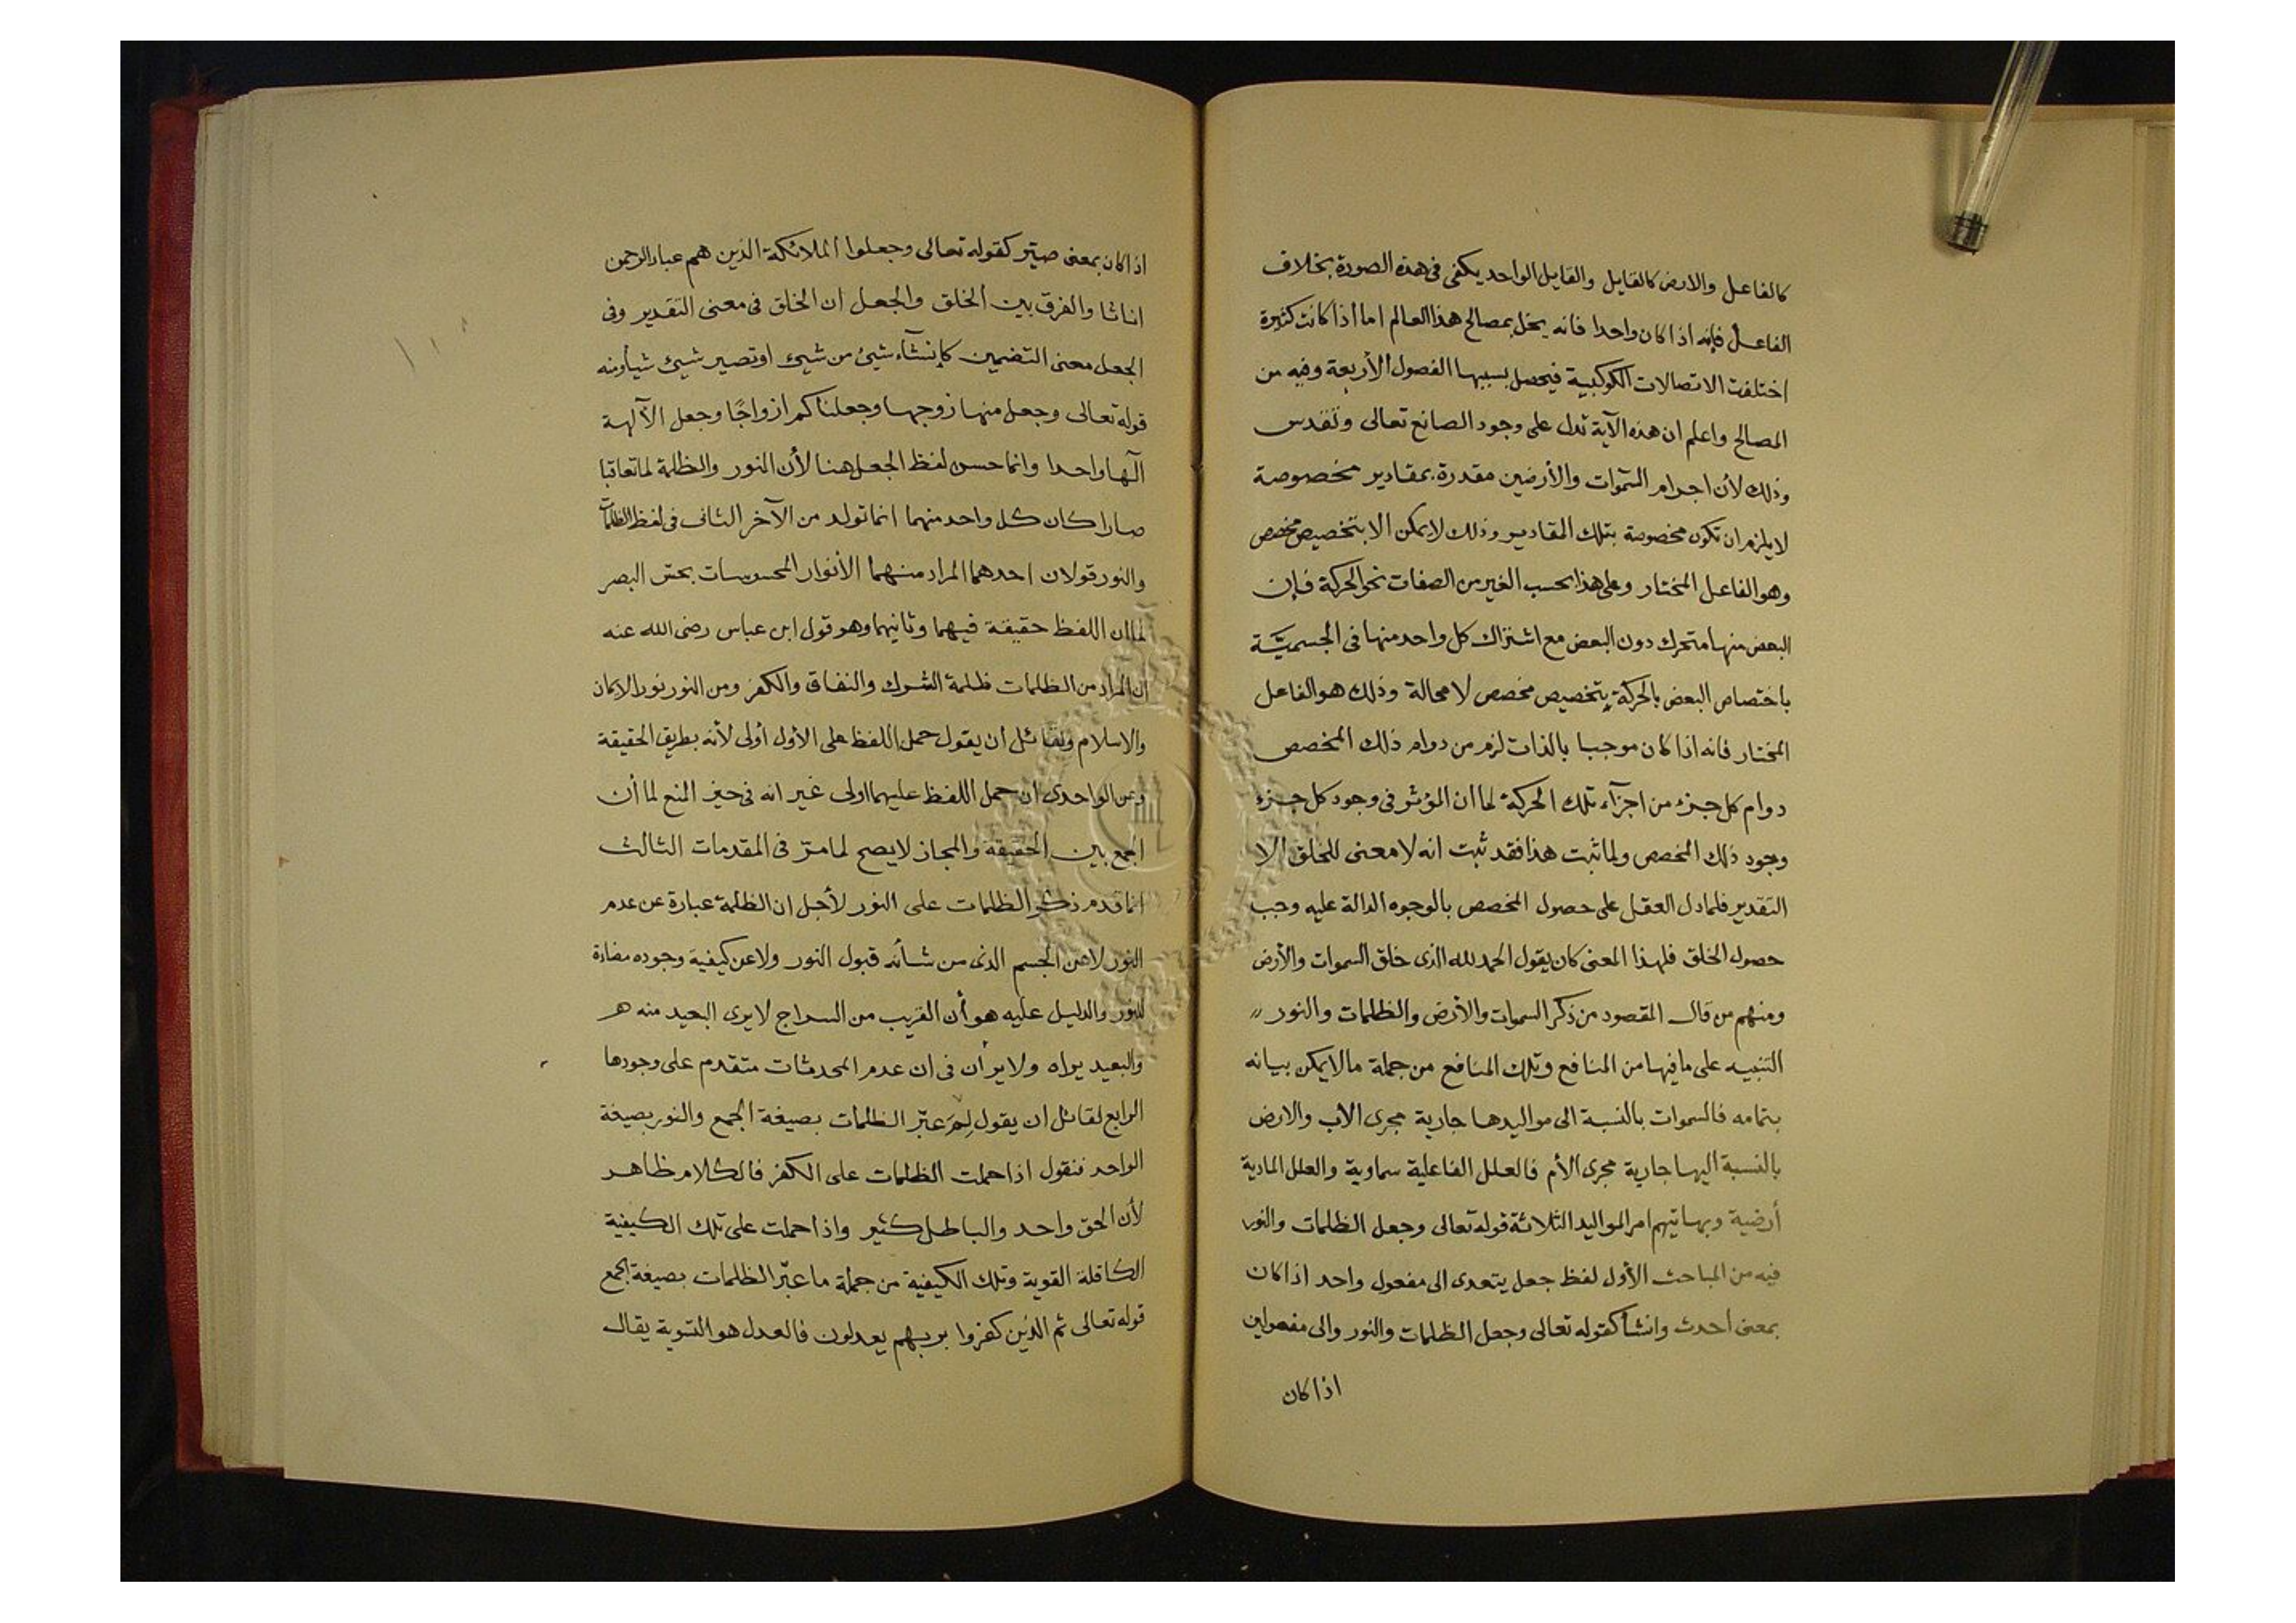 كالفاعل والارض كالقابل والقابل الواحد يكفى فى هذه الصورة بخلاف
الفاعل فإنه اذا كان واحدا فانه يخل بمصالح هذا العالم اما اذا كانت كثيرة
اختلفت الاتصالات الكوكبية فيحصل بسببها الفصول الأربعة وفيه من
المصالح واعلم ان هذه الآية تدل على وجود الصانع تعالى وتقدس
وذلك لأن اجرام السموات والأرضين مقدرة بمقادير مخصوصة
لا يلزم ان تكون مخصوصة بتلك المقادير وذلك لا يمكن الا بتخصيص مخصص
وهو الفاعل المختار وعلى هذا بحسب الغير من الصفات نحو الحركة فإن
البعض منها متحرك دون البعض مع اشتراك كل واحد منها فى الجسميّة
باختصاص البعض بالحركة بتخصيص مخصص لا محالة وذلك هو الفاعل
المختار فانه اذا كان موجبا بالذات لزم من دوام ذلك المخصص
دوام كل جزء من اجزآء تلك الحركة لما ان المؤثر فى وجود كل جزء
وجود ذلك المخصص ولما ثبت هذا فقد ثبت انه لا معنى للخلق الا
التقدير فلما دل العقل على حصول المخصص بالوجوه الدالة عليه وجب
حصول الخلق فلهذا المعنى كان يقول الحمد لله الذى خلق السموات والأرض
ومنهم من قال المقصود من ذكر السموات والأرض والظلمات والنور
التنبيه على ما فيها من المنافع وتلك المنافع من جملة ما لا يمكن بيانه
بتمامه فالسموات بالنسبة الى مواليدها جارية مجرى الاب والارض
بالنسبة اليها جارية مجرى الأم فالعلل الفاعلية سماوية والعلل المادية
أرضية وبها يتم امر المواليد الثلاثة قوله تعالى وجعل الظلمات والنور
فيه من المباحث الأول لفظ جعل يتعدى الى مفعول واحد اذا كان
بمعنى أحدث وانشأ كقوله تعالى وجعل الظلمات والنور والى مفعولين
اذا كان
اذا كان بمعنى صيّر كقوله تعالى وجعلوا الملائكة الذين هم عباد الرحمن
اناثا والفرق بين الخلق والجعل ان الخلق فى معنى التقدير وفى
الجعل معنى التضمين كإنشآء شيئ من شيئ او تصير شيئ شيأ ومنه
قوله تعالى وجعل منها زوجها وجعلناكم ازواجًا وجعل الآلهة
آلها واحدا وانما حسن لفظ الجعل هنا لأن النور والظلمة لما تعاقبا
صارا كان كل واحد منهما انما تولد من الآخر الثانى فى لفظ الظلمات
والنور قولان احدهما المراد منهما الأنوار المحسوسات بحسّ البصر
لما ان اللفظ حقيقة فيهما وثانيهما وهو قول ابن عباس رضى الله عنه
ان المراد من الظلمات ظلمة الشرك والنفاق والكفر ومن النور نور الايمان
والاسلام ولقائل أن يقول حمل اللفظ على الأول أولى لأنه بطريق الحقيقة
وعن الواحدى ان حمل اللفظ عليهما اولى غير انه فى حيز المنع لما أن
الجمع بين الحقيقة والمجاز لا يصح لما مرّ فى المقدمات الثالث
انما قدم ذكر الظلمات على النور لأجل ان الظلمة عبارة عن عدم
النور لا عن الجسم الذى من شأنه قبول النور ولا عن كيفية وجوده مضادة
للنور والدليل عليه هو أن القريب من السراج لا يرى البعيد منه
والبعيد يراه ولا ير أن فى ان عدم المحدثات متقدم على وجودها
الرابع لقائل ان يقول لِمَ عبّر الظلمات بصيغة الجمع والنور بصيغة
الواحد فنقول اذا حملت الظلمات على الكفر فالكلام ظاهر
لأن الحق واحد والباطل كثير واذا حملت على تلك الكيفية
الكاقلة القوية وتلك الكيفية من جملة ما عبّر الظلمات بصيغة الجمع
قوله تعالى ثم الذين كفروا بربهم يعدلون فالعدل هو التسوية يقال